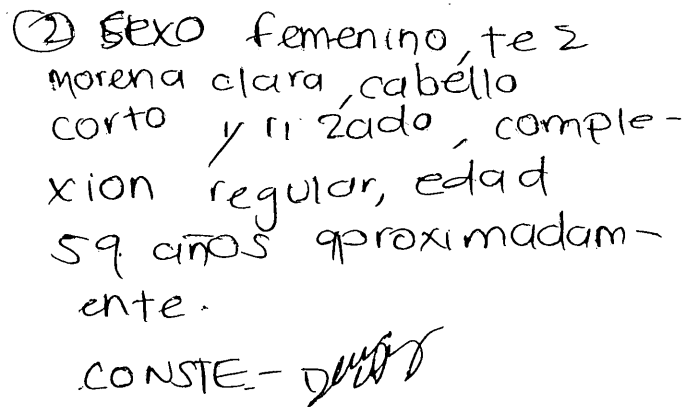 ② sexo femenino, tez
morena clara, cabello
corto y rizado, comple-
xion regular, edad
59 años aproximadam-
ente.
CONSTE.-